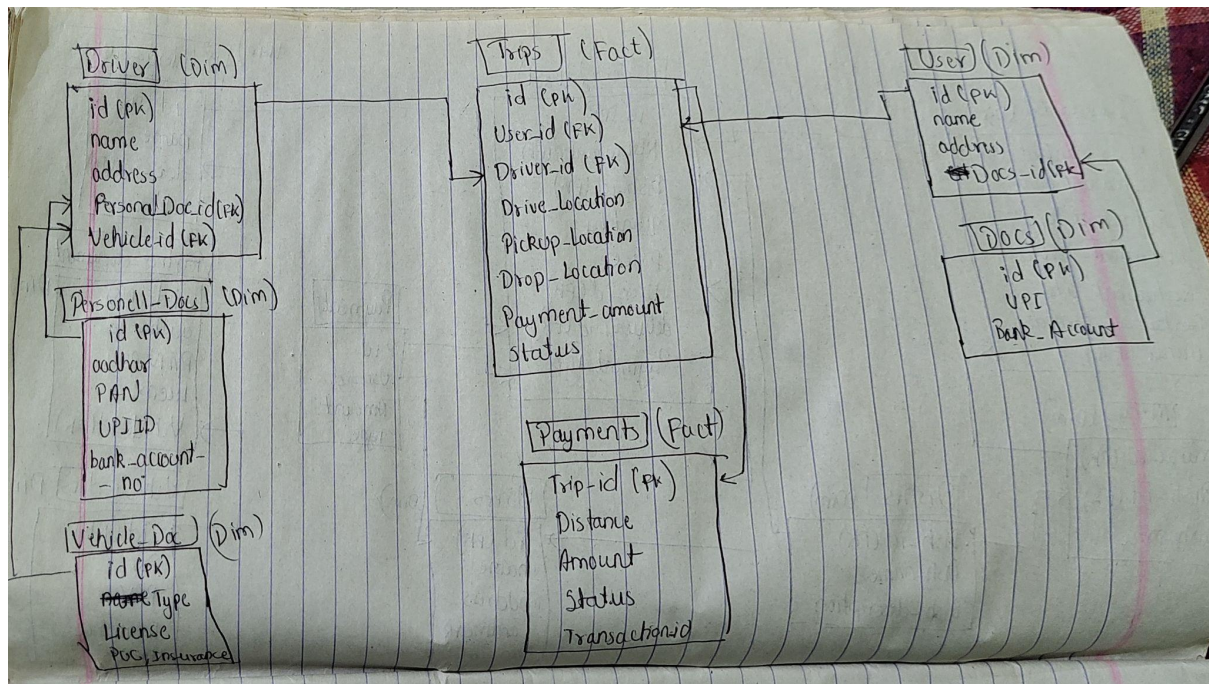 Driver (Dim)
id (PK)
name
address
Personal_Doc_id (FK)
Vehicle_id (FK)
Personell_Docs (Dim)
id (PK)
aadhar
PAN
UPI ID
bank_account_
- no
Vehicle_Doc (Dim)
id (PK)
Type
License
PUC, Insurance
Trips (Fact)
id (PK)
User_id (FK)
Driver_id (FK)
Drive_Location
Pickup_Location
Drop_Location
Payment_amount
Status
Payments (Fact)
Trip-id (PK)
Distance
Amount
Status
Transactionid
User (Dim)
id (PK)
name
address
Docs_id (FK)
Docs (Dim)
id (PK)
UPI
Bank_Account